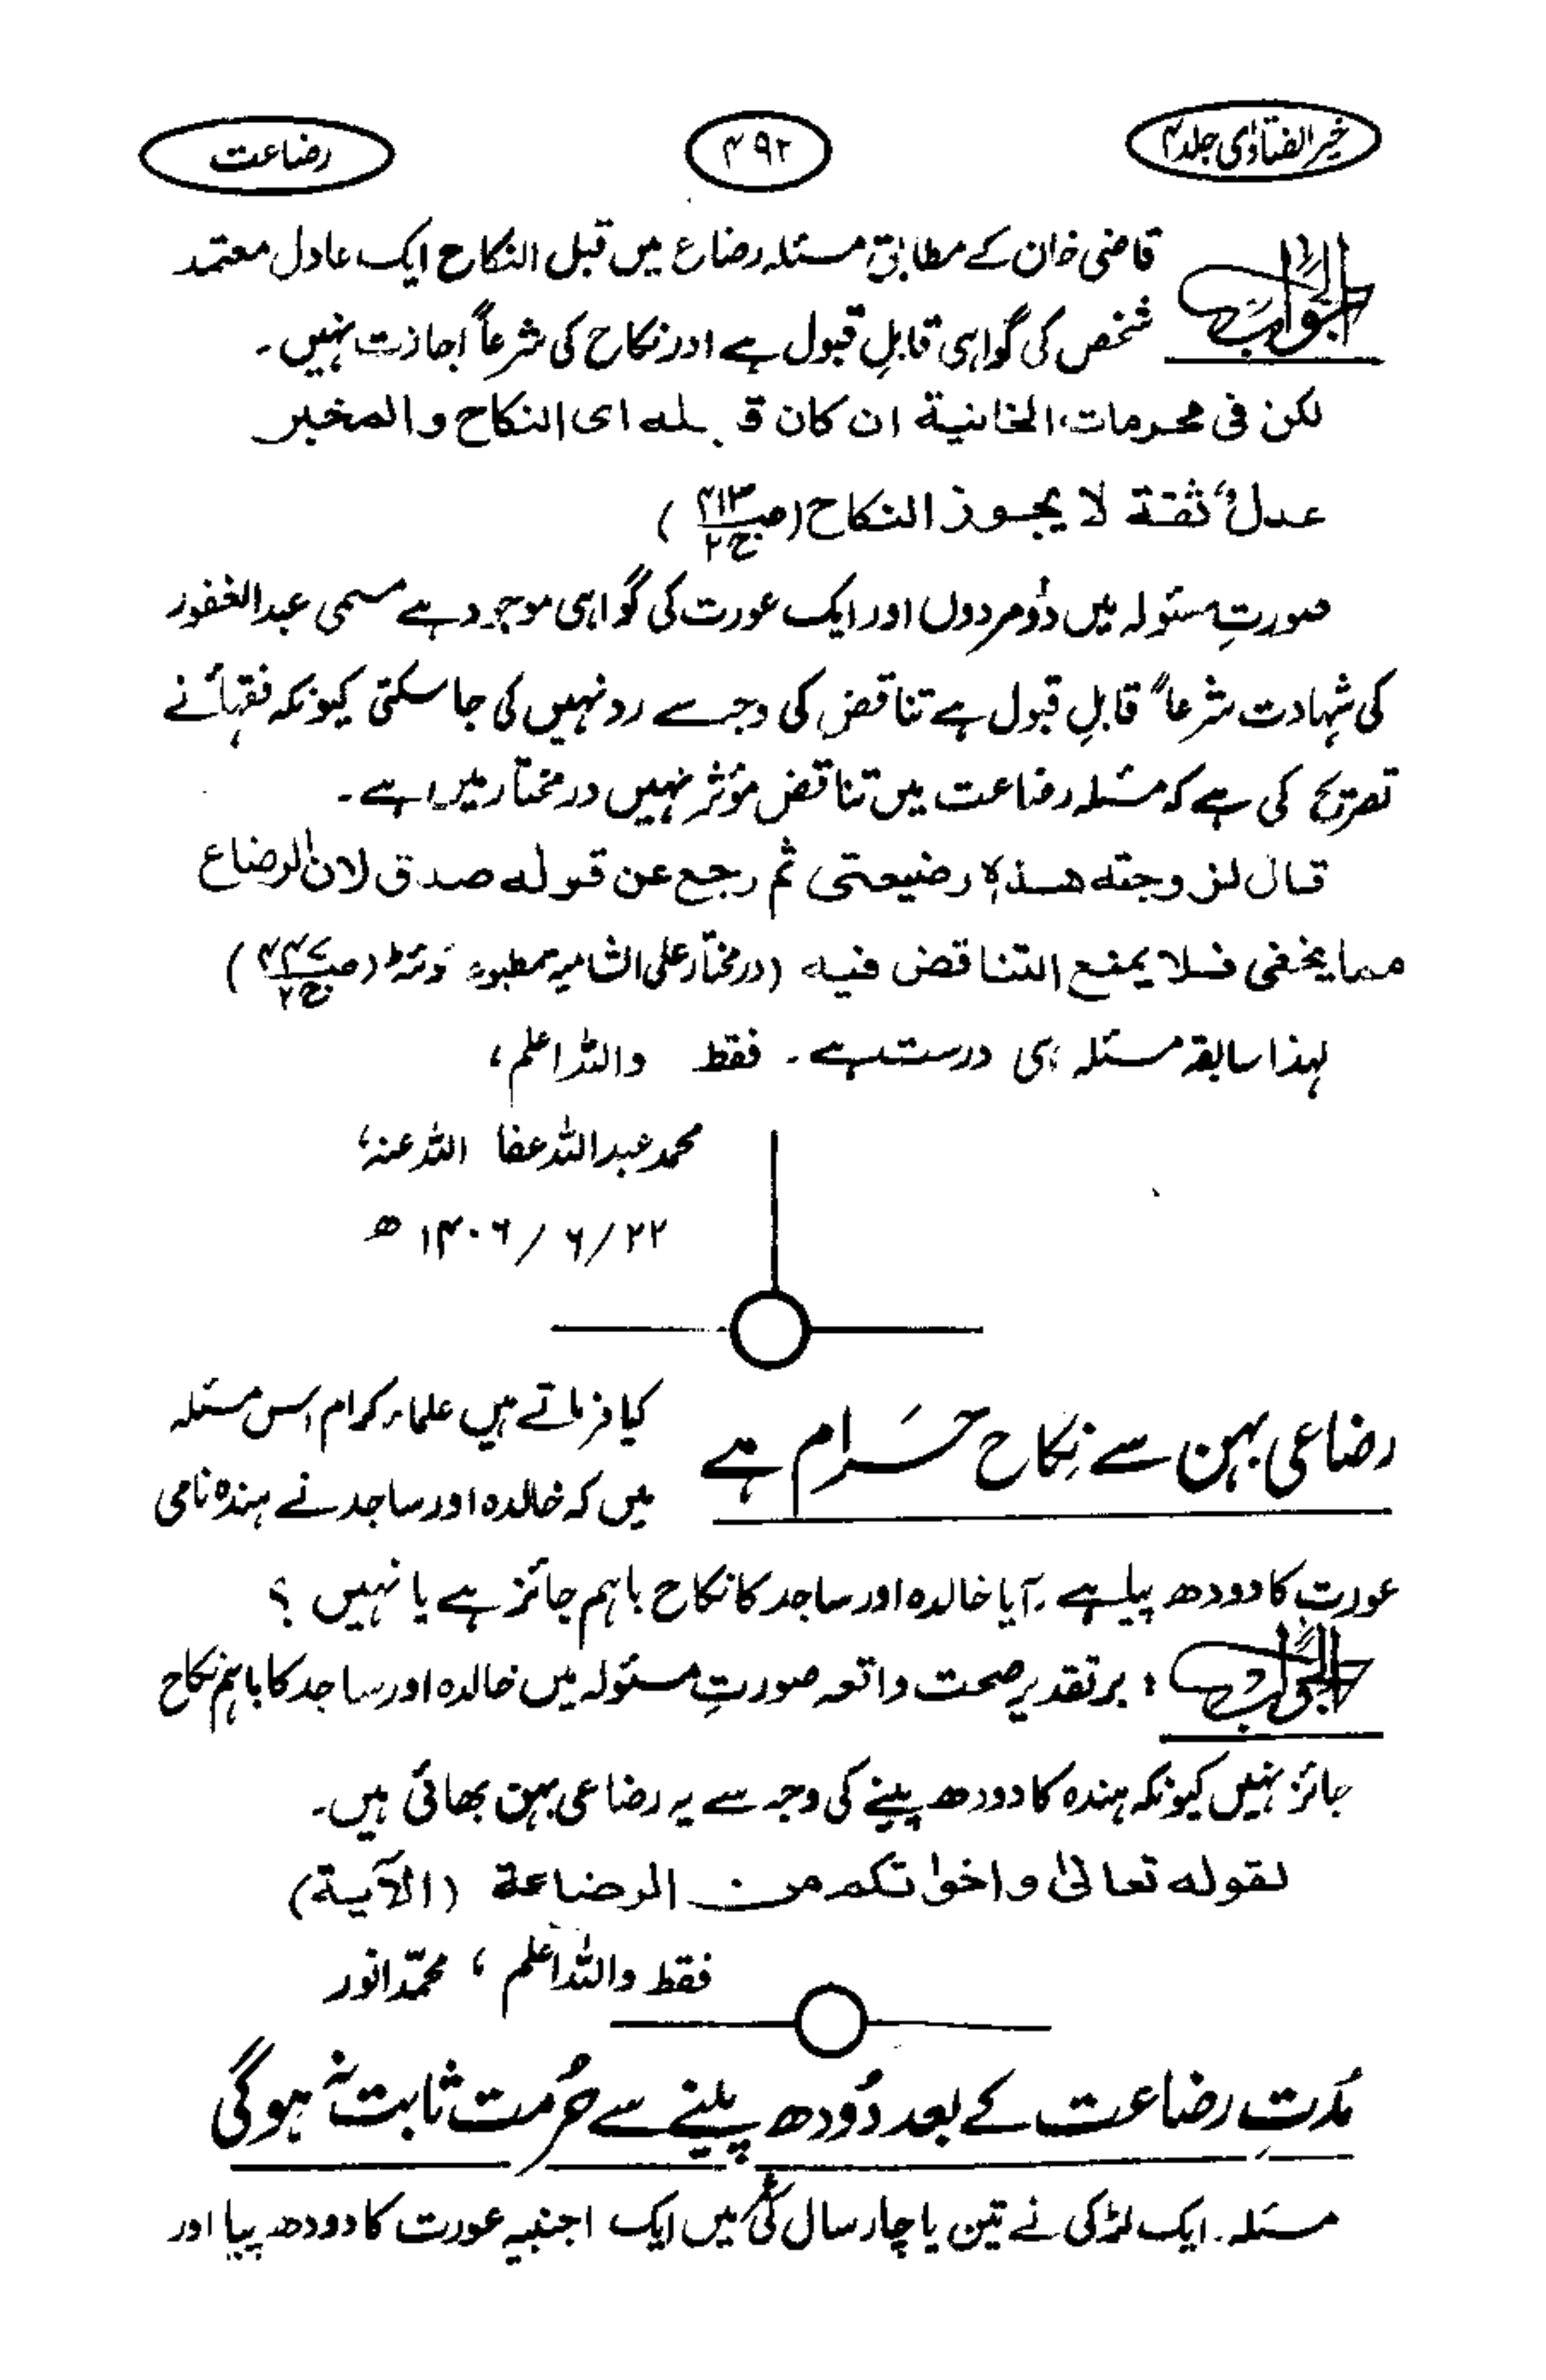 خیر الفتاویٰ جلد ۴
۴۹۲
رضاعت
الجواب قاضی خان کے مطابق مسئلہ رضاع میں قبل النکاح ایک عادل معتمد
شخص کی گواہی قابلِ قبول ہے اور نکاح کی شرعاً اجازت نہیں۔
لکن فی محرمات الخانیة ان کان قبله ای النکاح والمخبر
عدلٌ ثقة لا یجوز النکاح (ص۴۱۳ ج۲)
صورتِ مسئولہ میں دُو مردوں اور ایک عورت کی گواہی موجود ہے مسمی عبدالغفور
کی شہادت شرعاً قابلِ قبول ہے تناقض کی وجہ سے رد نہیں کی جا سکتی کیونکہ فقہائ نے
تصریح کی ہے کہ مسئلہ رضاعت میں تناقض مؤثر نہیں در مختار میں ہے۔
قال لزوجته هذه رضیعتی ثم رجع عن قوله صدق لان الرضاع
مما یخفی فلا یمنع التناقض فیه (در مختار علی الشامیہ مطبوعہ کوئٹہ ج۲)
لہذا سابقہ مسئلہ ہی درست ہے۔ فقط واللہ اعلم،
محمد عبداللہ عفا اللہ عنہ،
۲۲/۶/۱۴۰۶ھ
رضاعی بہن سے نِکاح حَرام ہے
کیا فرماتے ہیں علماء کرام اس مسئلہ
میں کہ خالدہ اور ساجد نے ہندہ نامی
عورت کا دودھ پیا ہے۔ آیا خالدہ اور ساجد کا نکاح باہم جائز ہے یا نہیں؟
الجواب : برتقدیرِ صحت واقعہ صورتِ مسئولہ میں خالدہ اور ساجد کا باہم نکاح
جائز نہیں کیونکہ ہندہ کا دودھ پینے کی وجہ سے یہ رضاعی بہن بھائی ہیں۔
لقوله تعالیٰ واخواتکم من الرضاعة (الآیة)
فقط واللہ اعلم، محمّد انور
مُدتِ رضاعت کے بعد دُودھ پینے سے حُرمت ثابت نہ ہوگی
مسئلہ۔ ایک لڑکی نے تین یا چار سال کی عمر میں ایک اجنبیہ عورت کا دودھ پیا اور